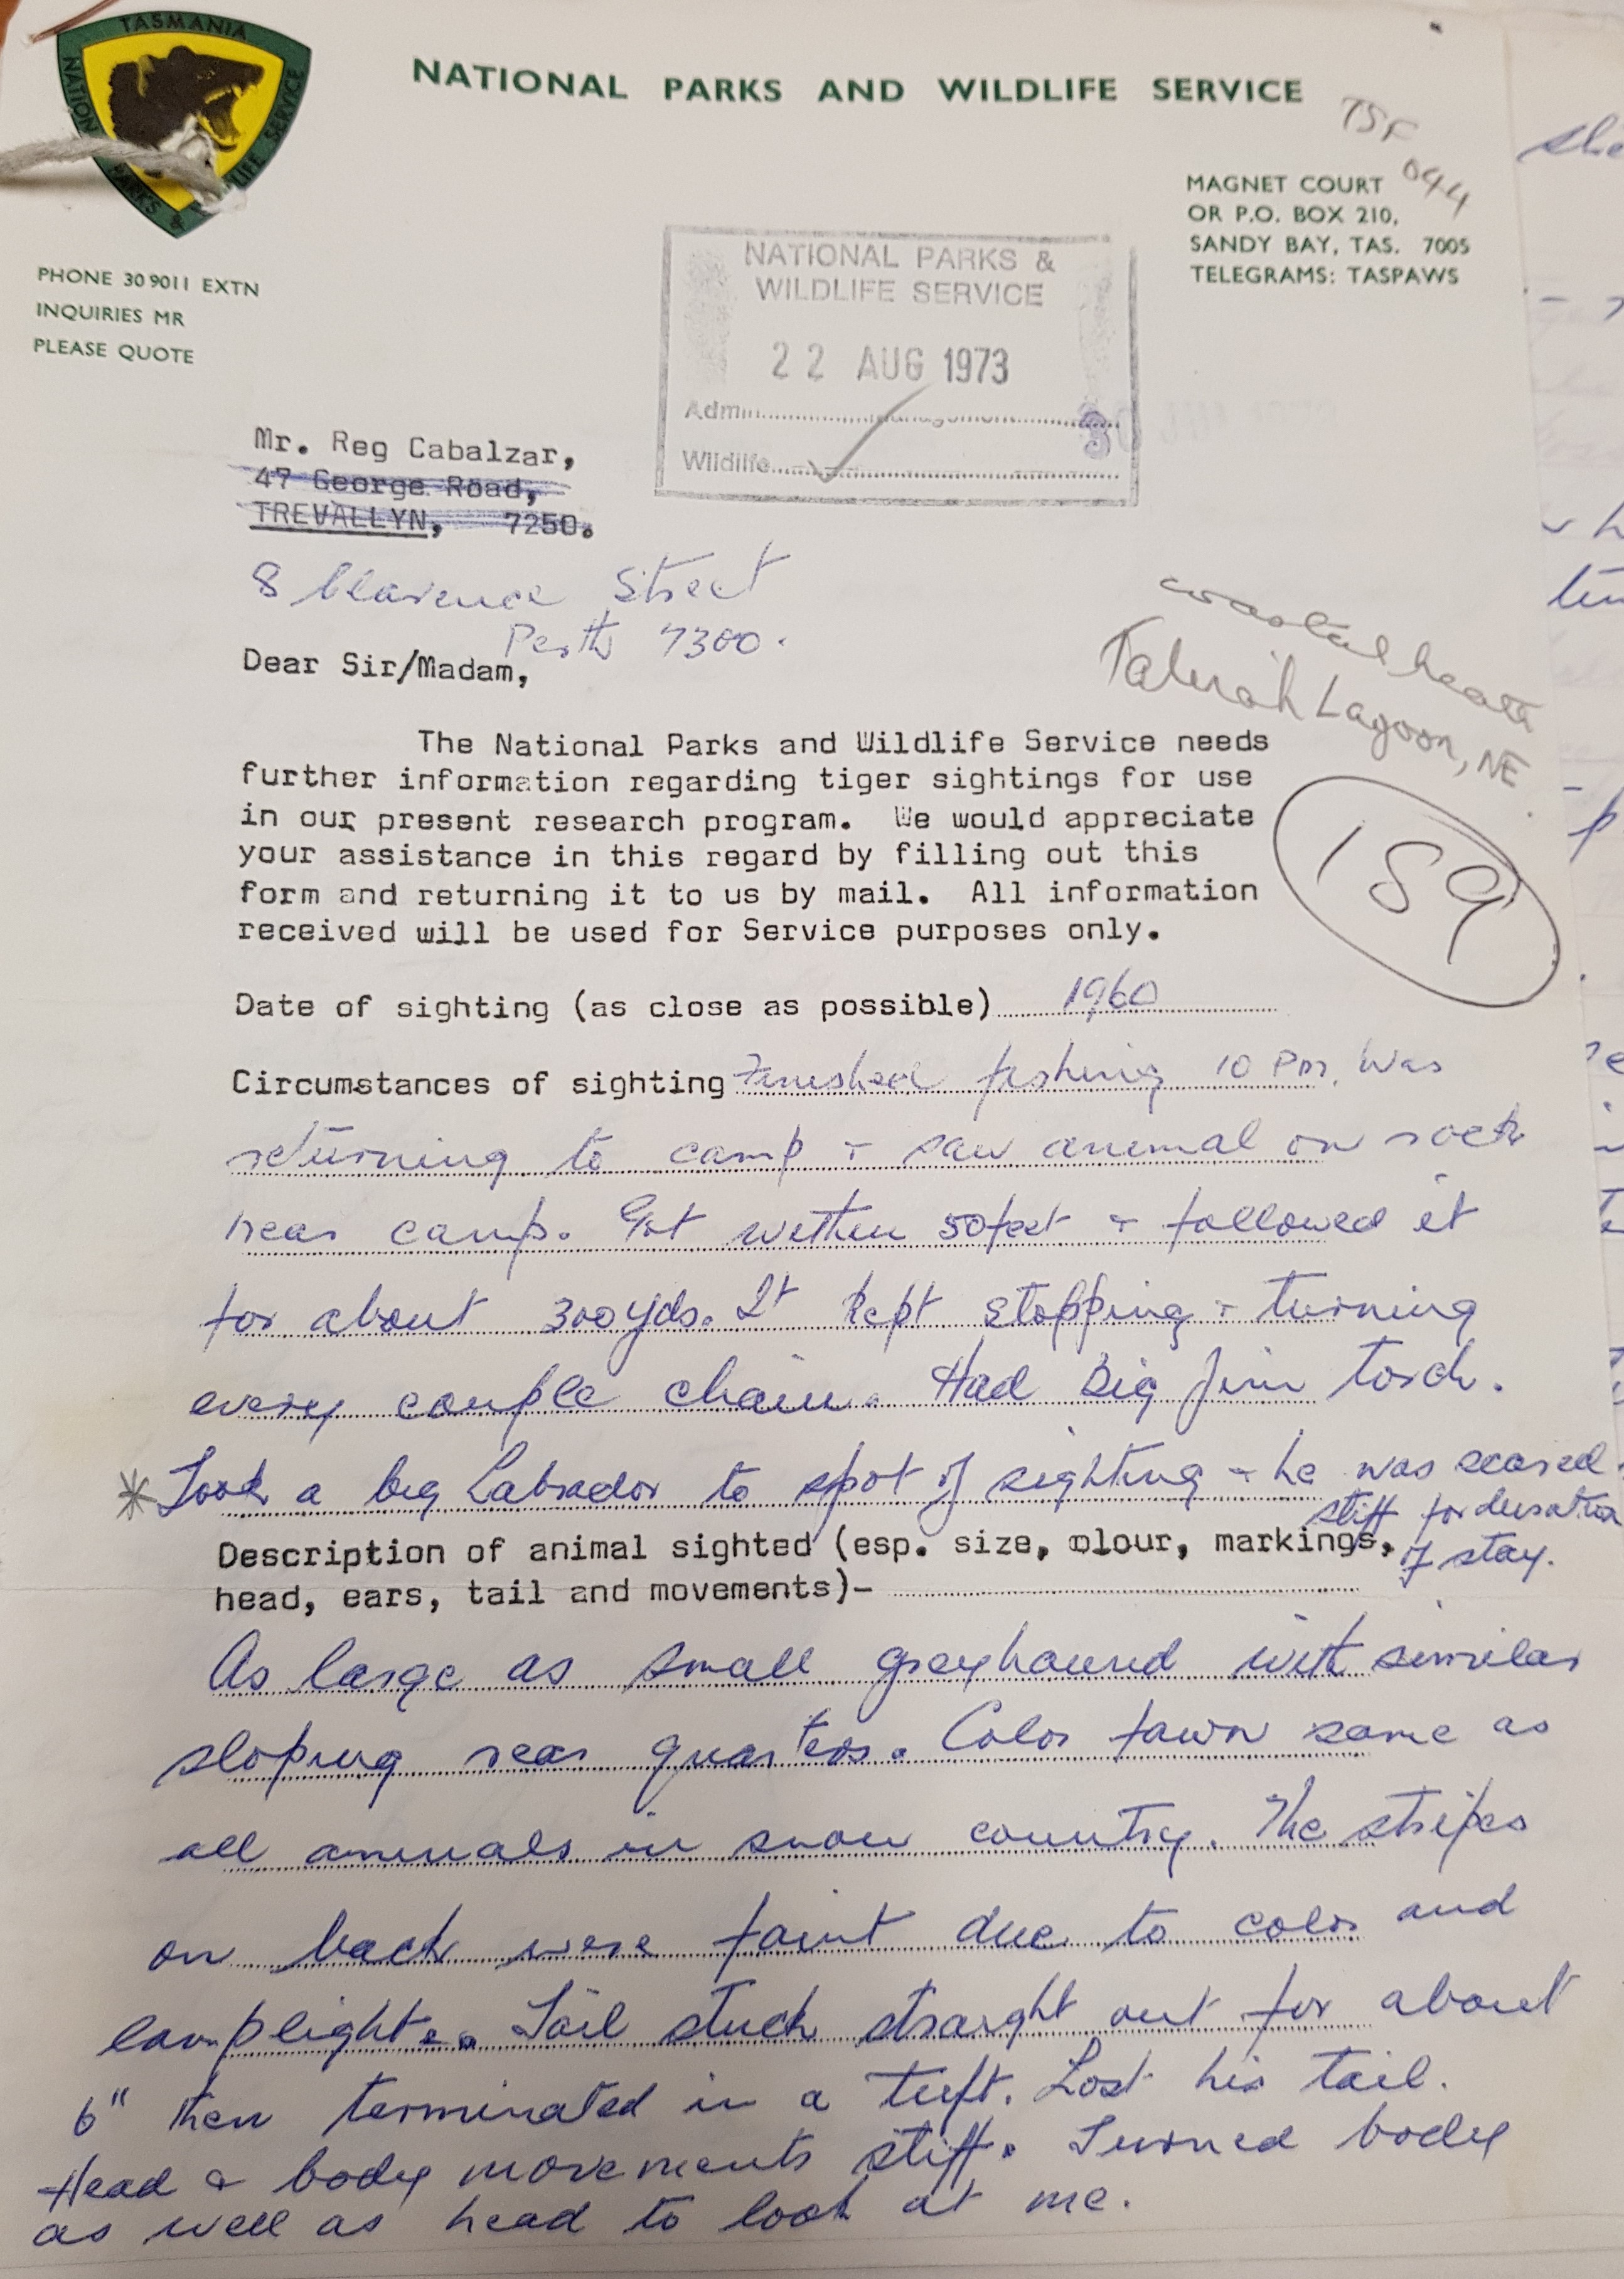 TASMANIA
NATIONAL PARKS AND WILDLIFE SERVICE
TSF
044
MAGNET COURT
OR P.O. BOX 210,
SANDY BAY, TAS. 7005
TELEGRAMS: TASPAWS
PHONE 30 9011 EXTN
INQUIRIES MR
PLEASE QUOTE
NATIONAL PARKS &
WILDLIFE SERVICE
22 AUG 1973
Admin
Wildlife
Mr. Reg Cabalzar,
47 George Road,
TREVALLYN, 7250.
8 Clarence Street
Perth 7300.
coastal heath
Lagoon, NE
189
Dear Sir/Madam,
The National Parks and Wildlife Service needs
further information regarding tiger sightings for use
in our present research program. We would appreciate
your assistance in this regard by filling out this
form and returning it to us by mail. All information
received will be used for Service purposes only.
Date of sighting (as close as possible) 1960
Circumstances of sighting Finished fishing 10 PM. Was
returning to camp + saw animal on rock
near camp. Got within 50 feet + followed it
for about 300 yds. It kept stopping + turning
every couple chain. Had Big Jim torch.
* Took a big Labrador to spot of sighting - he was scared
stiff for duration
of stay.
Description of animal sighted (esp. size, olour, markings,
head, ears, tail and movements)-
As large as small greyhound with similar
sloping rear quarters. Color fawn same as
all animals in snow country. The stripes
on back were faint due to color and
lamplight. Tail stuck straight out for about
6" then terminated in a tuft. Lost his tail.
Head & body movements stiff. Turned body
as well as head to look at me.